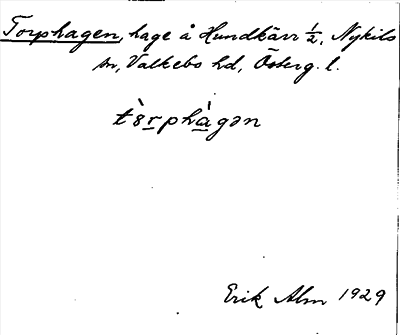 Torphagen, hage å Hundkärr ½, Nykils
sn, Valkebo hd, Österg. l.
tò̀rphàgən
Erik Alm 1929